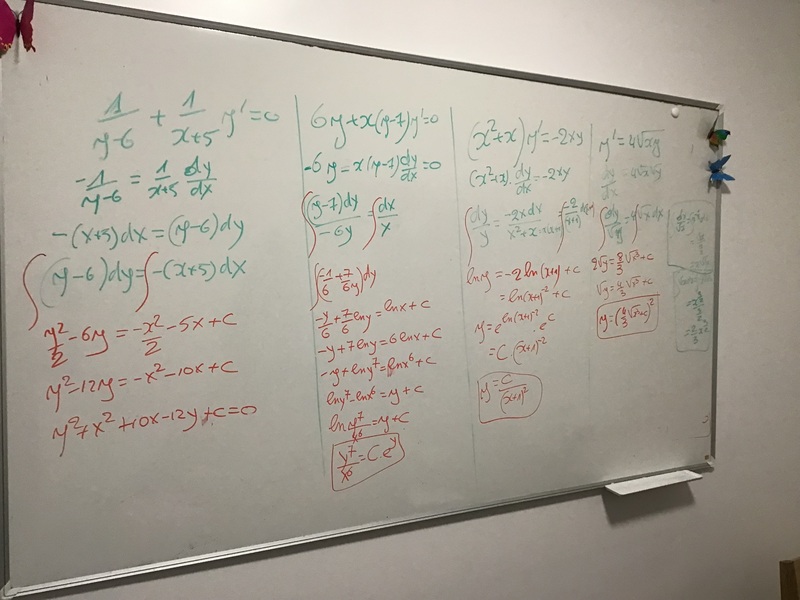 1/(y-6) + 1/(x+5) y' = 0
-1/(y-6) = 1/(x+5) dy/dx
-(x+5)dx = (y-6)dy
∫(y-6)dy = ∫-(x+5)dx
y²/2 - 6y = -x²/2 - 5x + C
y² - 12y = -x² - 10x + C
y² + x² + 10x - 12y + C = 0
6y + x(y-7)y' = 0
-6y = x(y-7) dy/dx = 0
∫(y-7)dy/-6y = ∫dx/x
∫(-1/6 + 7/6y)dy
-y/6 + 7/6 lny = lnx + C
-y + 7lny = 6lnx + C
-y + lny⁷ = lnx⁶ + C
lny⁷ - lnx⁶ = y + C
ln y⁷/x⁶ = y + C
y⁷/x⁶ = C e^y
(x²+x)y' = -2xy
(x²+x)·dy/dx = -2xy
∫dy/y = -2xdx/x²+x
lny = -2ln(x+1) + C
= ln(x+1)⁻² + C
y = e^ln(x+1)⁻² · e^C
= C·(x+1)⁻²
y = C/(x+1)²
y' = 4√xy
dy/dx = 4√x√y
∫dy/√y = 4∫√x dx
2√y = 8/3 √x³ + C
√y = 4/3 √x³ + C
y = (4/3 √x³ + C)²